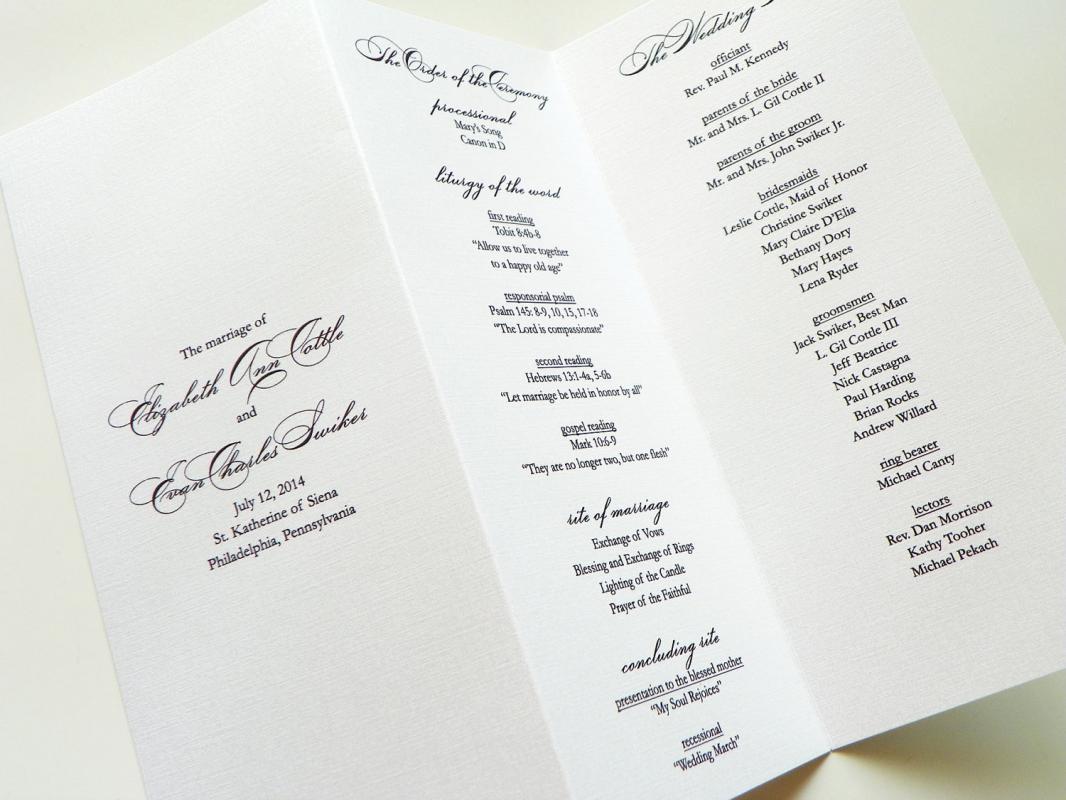 The marriage of
Elizabeth Ann Cottle
and
Evan Charles Swiker
July 12, 2014
St. Katherine of Siena
Philadelphia, Pennsylvania
The Order of the Ceremony
processional
Mary's Song
Canon in D
liturgy of the word
first reading
Tobit 8:4b-8
"Allow us to live together
to a happy old age"
responsorial psalm
Psalm 145: 8-9, 10, 15, 17-18
"The Lord is compassionate"
second reading
Hebrews 13:1-4a, 5-6b
"Let marriage be held in honor by all"
gospel reading
Mark 10:6-9
"They are no longer two, but one flesh"
rite of marriage
Exchange of Vows
Blessing and Exchange of Rings
Lighting of the Candle
Prayer of the Faithful
concluding rite
presentation to the blessed mother
"My Soul Rejoices"
recessional
"Wedding March"
The Wedding
officiant
Rev. Paul M. Kennedy
parents of the bride
Mr. and Mrs. L. Gil Cottle II
parents of the groom
Mr. and Mrs. John Swiker Jr.
bridesmaids
Leslie Cottle, Maid of Honor
Christine Swiker
Mary Claire D'Elia
Bethany Dory
Mary Hayes
Lena Ryder
groomsmen
Jack Swiker, Best Man
L. Gil Cottle III
Jeff Beatrice
Nick Castagna
Paul Harding
Brian Rocks
Andrew Willard
ring bearer
Michael Canty
lectors
Rev. Dan Morrison
Kathy Tooher
Michael Pekach